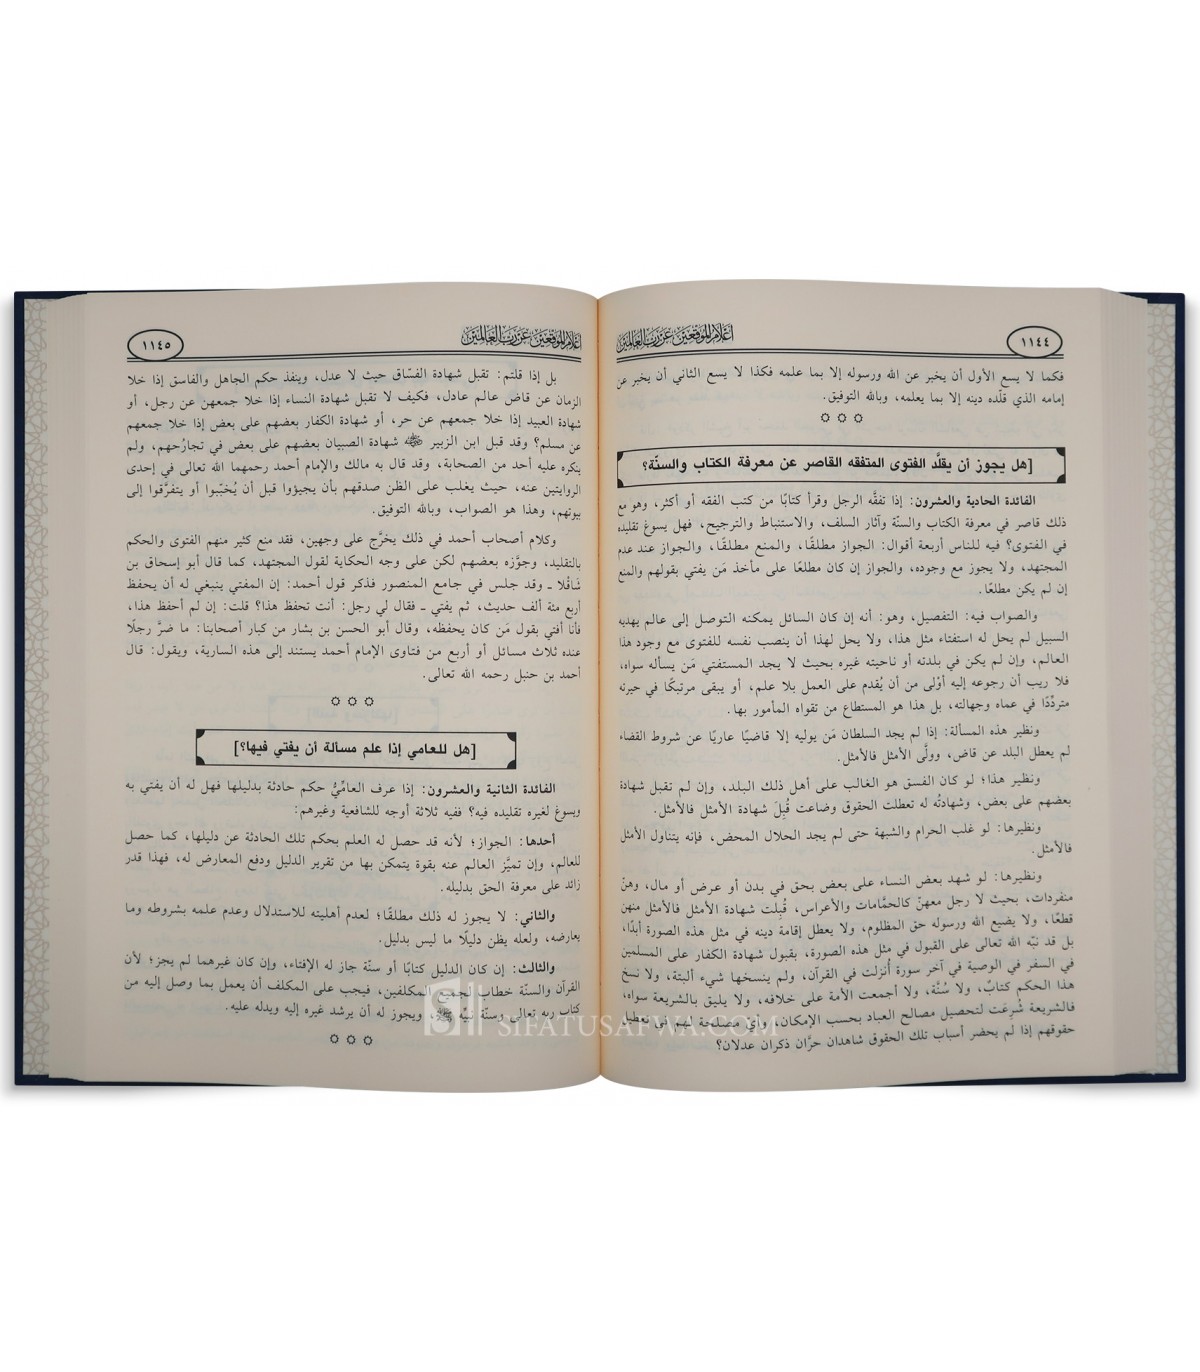 ١١٤٤
أعلام الموقعين عن رب العالمين
فكما لا يسع الأول أن يخبر عن الله ورسوله إلا بما علمه فكذا لا يسع الثاني أن يخبر عن
إمامه الذي قلّده دينه إلا بما يعلمه، وبالله التوفيق.
[هل يجوز أن يقلَّد الفتوى المتفقه القاصر عن معرفة الكتاب والسنّة؟
الفائدة الحادية والعشرون: إذا تفقَّه الرجل وقرأ كتابًا من كتب الفقه أو أكثر، وهو مع
ذلك قاصر في معرفة الكتاب والسنّة وآثار السلف، والاستنباط والترجيح، فهل يسوغ تقليده
في الفتوى؟ فيه للناس أربعة أقوال: الجواز مطلقًا، والمنع مطلقًا، والجواز عند عدم
المجتهد، ولا يجوز مع وجوده، والجواز إن كان مطلعًا على مأخذ مَن يفتي بقولهم والمنع
إن لم يكن مطلعًا.
والصواب فيه: التفصيل، وهو: أنه إن كان السائل يمكنه التوصل إلى عالم يهديه
السبيل لم يحل له استفتاء مثل هذا، ولا يحل لهذا أن ينصب نفسه للفتوى مع وجود هذا
العالم، وإن لم يكن في بلدته أو ناحيته غيره بحيث لا يجد المستفتي مَن يسأله سواه،
فلا ريب أن رجوعه إليه أوْلى من أن يُقدم على العمل بلا علم، أو يبقى مرتبكًا في حيرته
متردِّدًا في عماه وجهالته، بل هذا هو المستطاع من تقواه المأمور بها.
ونظير هذه المسألة: إذا لم يجد السلطان مَن يوليه إلا قاضيًا عاريًا عن شروط القضاء
لم يعطل البلد عن قاض، وولَّى الأمثل فالأمثل.
ونظير هذا؛ لو كان الفسق هو الغالب على أهل ذلك البلد، وإن لم تقبل شهادة
بعضهم على بعض، وشهادتُه له تعطلت الحقوق وضاعت قُبِلَ شهادة الأمثل فالأمثل.
ونظيرها: لو غلب الحرام والشبهة حتى لم يجد الحلال المحض، فإنه يتناول الأمثل
فالأمثل.
ونظيرها: لو شهد بعض النساء على بعض بحق في بدن أو عرض أو مال، وهنّ
منفردات، بحيث لا رجل معهنّ كالحمَّامات والأعراس، قُبِلت شهادة الأمثل فالأمثل منهن
قطعًا، ولا يضيع الله ورسوله حق المظلوم، ولا يعطل إقامة دينه في مثل هذه الصورة أبدًا،
بل قد نبّه الله تعالى على القبول في مثل هذه الصورة، بقبول شهادة الكفار على المسلمين
في السفر في الوصية في آخر سورة أُنزلت في القرآن، ولم ينسخها شيء ألبتة، ولا نسخ
هذا الحكم كتابٌ، ولا سُنَّة، ولا أجمعت الأمة على خلافه، ولا يليق بالشريعة سواه،
فالشريعة شُرِعَت لتحصيل مصالح العباد بحسب الإمكان، وأي مصلحة لهم في تعطيل
حقوقهم إذا لم يحضر أسباب تلك الحقوق شاهدان حرَّان ذكران عدلان؟
أعلام الموقعين عن رب العالمين
١١٤٥
بل إذا قلتم: تقبل شهادة الفسّاق حيث لا عدل، وينفذ حكم الجاهل والفاسق إذا خلا
الزمان عن قاض عالم عادل، فكيف لا تقبل شهادة النساء إذا خلا جمعهن عن رجل، أو
شهادة العبيد إذا خلا جمعهم عن حر، أو شهادة الكفار بعضهم على بعض إذا خلا جمعهم
عن مسلم؟ وقد قبل ابن الزبير ﷺ شهادة الصبيان بعضهم على بعض في تجارُحهم، ولم
ينكره عليه أحد من الصحابة، وقد قال به مالك والإمام أحمد رحمهما الله تعالى في إحدى
الروايتين عنه، حيث يغلب على الظن صدقهم بأن يجيؤوا قبل أن يُخبّبوا أو يتفرَّقوا إلى
بيوتهم، وهذا هو الصواب، وبالله التوفيق.
وكلام أصحاب أحمد في ذلك يخرَّج على وجهين، فقد منع كثير منهم الفتوى والحكم
بالتقليد، وجوّزه بعضهم لكن على وجه الحكاية لقول المجتهد، كما قال أبو إسحاق بن
شاقْلا ـ وقد جلس في جامع المنصور فذكر قول أحمد: إن المفتي ينبغي له أن يحفظ
أربع مئة ألف حديث، ثم يفتي ـ فقال لي رجل: أنت تحفظ هذا؟ قلت: إن لم أحفظ هذا،
فأنا أفتي بقول مَن كان يحفظه، وقال أبو الحسن بن بشار من كبار أصحابنا: ما ضرَّ رجلًا
عنده ثلاث مسائل أو أربع من فتاوى الإمام أحمد يستند إلى هذه السارية، ويقول: قال
أحمد بن حنبل رحمه الله تعالى.
[هل للعامي إذا علم مسألة أن يفتي فيها؟]
الفائدة الثانية والعشرون: إذا عرف العامِّيُّ حكم حادثة بدليلها فهل له أن يفتي به
ويسوغ لغيره تقليده فيه؟ ففيه ثلاثة أوجه للشافعية وغيرهم:
أحدها: الجواز؛ لأنه قد حصل له العلم بحكم تلك الحادثة عن دليلها، كما حصل
للعالم، وإن تميَّز العالم عنه بقوة يتمكن بها من تقرير الدليل ودفع المعارض له، فهذا قدر
زائد على معرفة الحق بدليله.
والثاني: لا يجوز له ذلك مطلقًا؛ لعدم أهليته للاستدلال وعدم علمه بشروطه وما
يعارضه، ولعله يظن دليلًا ما ليس بدليل.
والثالث: إن كان الدليل كتابًا أو سنّة جاز له الإفتاء، وإن كان غيرهما لم يجز؛ لأن
القرآن والسنّة خطاب لجميع المكلفين، فيجب على المكلف أن يعمل بما وصل إليه من
كتاب ربه تعالى وسنّة نبيّه ﷺ، ويجوز له أن يرشد غيره إليه ويدله عليه.
SIFATUSAFWA.COM